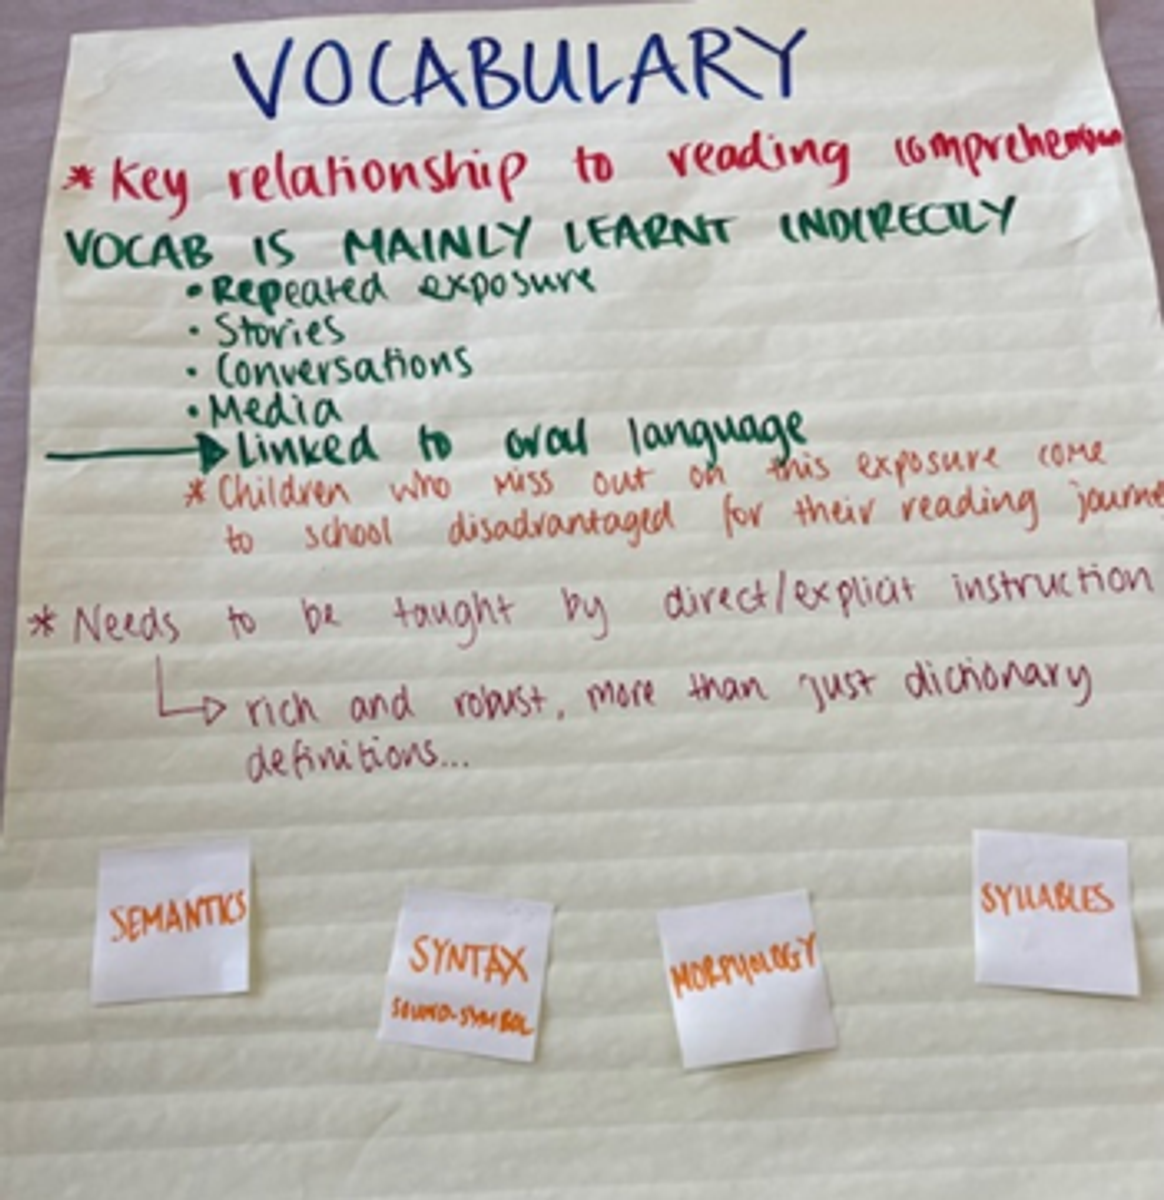 VOCABULARY
* Key relationship to reading comprehension
VOCAB IS MAINLY LEARNT INDIRECTLY
• Repeated exposure
• Stories
• Conversations
• Media
→ Linked to oral language
* Children who miss out on this exposure come
to school disadvantaged for their reading journe
* Needs to be taught by direct/explicit instruction
↳ rich and robust, more than just dictionary
definitions...
SEMANTICS
SYNTAX
SOUND-SYMBOL
MORPHOLOGY
SYLLABLES